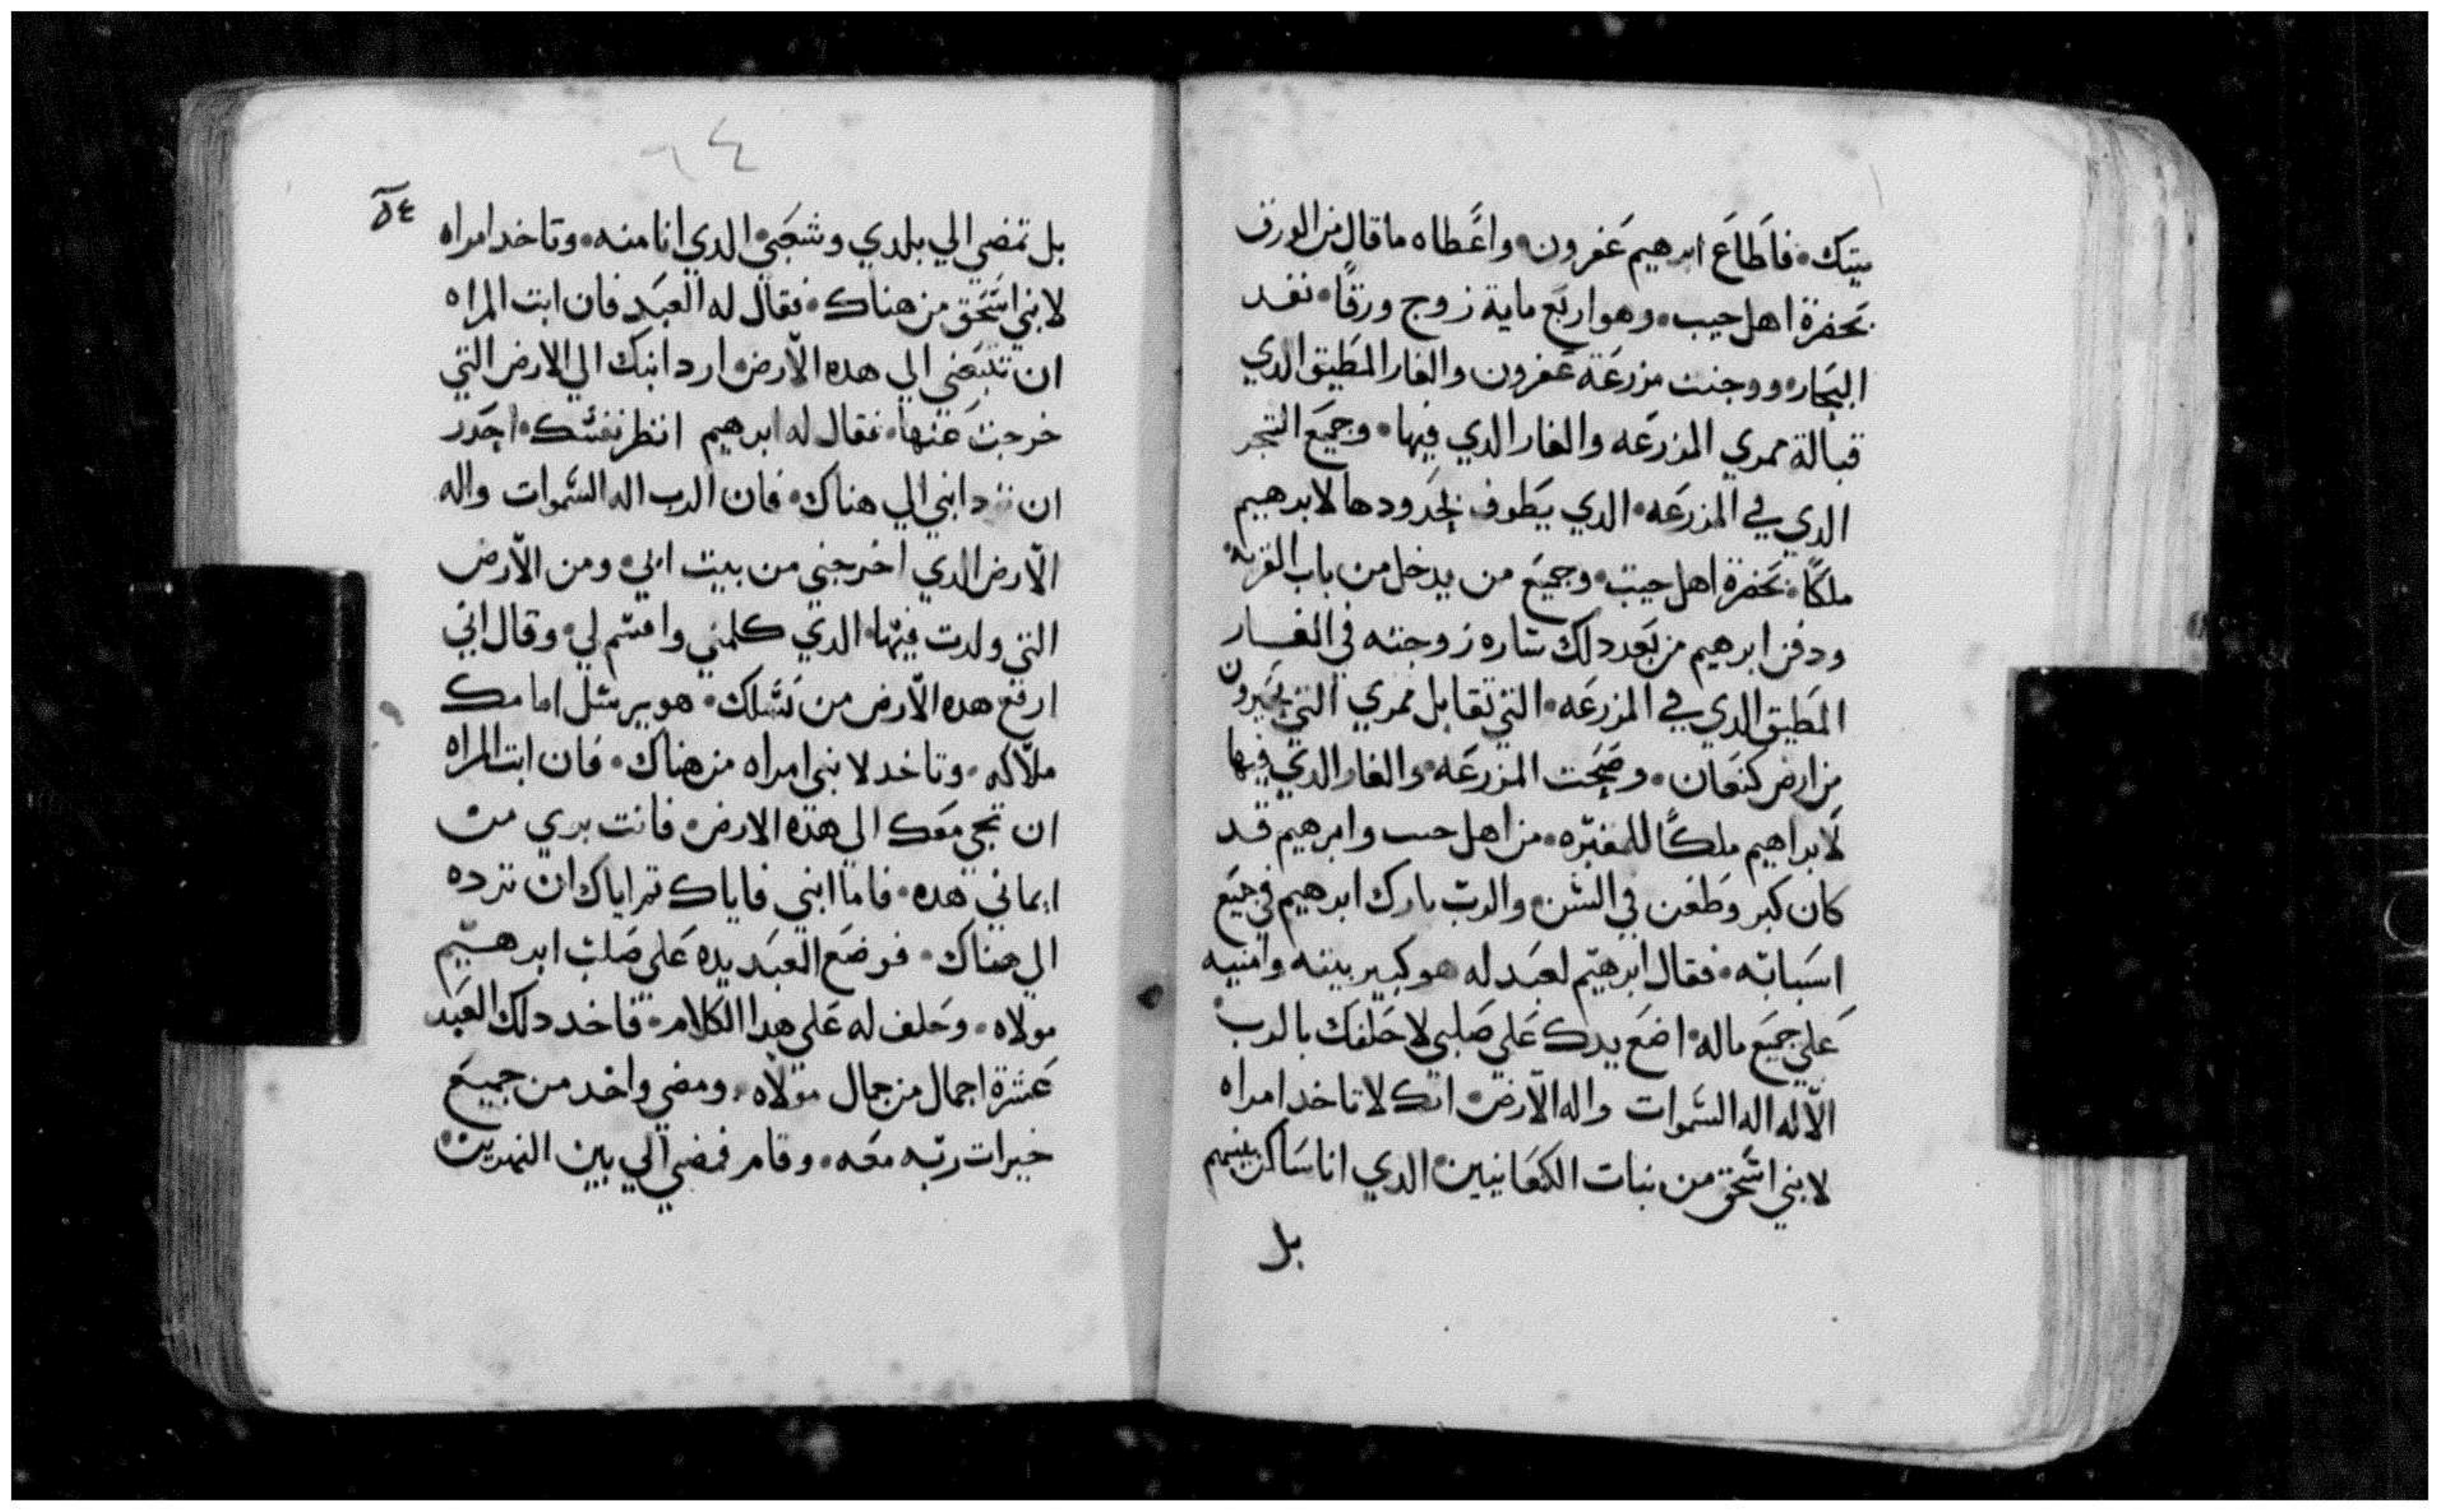 ميتك٠ فاطاع ابرهيم عفرون٠ واعطاه ما قال من الورق
بحضرة اهل حيب٠ وهو اربع ماية زوج ورقا٠ نقد
البجار٠ ووجنت مزرعة عفرون والغار المطبق الدي
قبالة ممري المزرعه والغار الدي فيها٠ وجميع الشجر
الدي في المزرعه٠ الدي يطوف بحدودها لابرهيم
ملكا٠ بحضرة اهل حيت٠ وجميع من يدخل من باب القريه٠
ودفن ابرهيم من بعد دلك ساره زوجته في الغار
المطبق الدي في المزرعه٠ التي تقابل ممري التي بحبرون
من ارض كنعان٠ وصحت المزرعه٠ والغار الدي فيها
لابراهيم ملكا للمقبره٠ من اهل حيب وابرهيم قد
كان كبر وطعن في السن٠ والرب بارك ابرهيم في جميع
اسبابه٠ فقال ابرهيم لعبد له هو كبير بيته وامنيه
علي جميع ماله٠ اضع يدك علي صلبي لاحلفك بالرب
الاله اله السموات واله الارض٠ انك لا تاخد امراه
لابني اسحق من بنات الكنعانيين٠ الدي انا ساكن بينهم
بل
٦٤
٥٤
بل تمضي الي بلدي وشعبي٠ الدي انا منه٠ وتاخد امراه
لابني اسحق من هناك٠ فقال له العبد فان ابت المراه
ان تتبعني الي هده الارض٠ ارد ابنك الي الارض التي
خرجت عنها٠ فقال له ابرهيم انظر نفسك٠ احدر
ان ترد ابني الي هناك٠ فان الرب اله السموات واله
الارض الدي اخرجني من بيت ابي٠ ومن الارض
التي ولدت فيها٠ الدي كلمني واقسم لي٠ وقال اني
ارفع هده الارض من نسلك٠ هو يرسل امامك
ملاكه٠ وتاخد لابني امراه من هناك٠ فان ابت المراه
ان تجي معك الي هده الارض٠ فانت بري من
ايماني هده٠ فاما ابني فاياك تم اياك ان ترده
الي هناك٠ فوضع العبد يده علي صلب ابرهيم
مولاه٠ وحلف له علي هدا الكلام٠ فاخد دلك العبد
عشرة اجمال من جمال مولاه٠ ومضي واخد من جميع
خيرات ربه معه٠ وقام فمضي الي بين النهرين٠